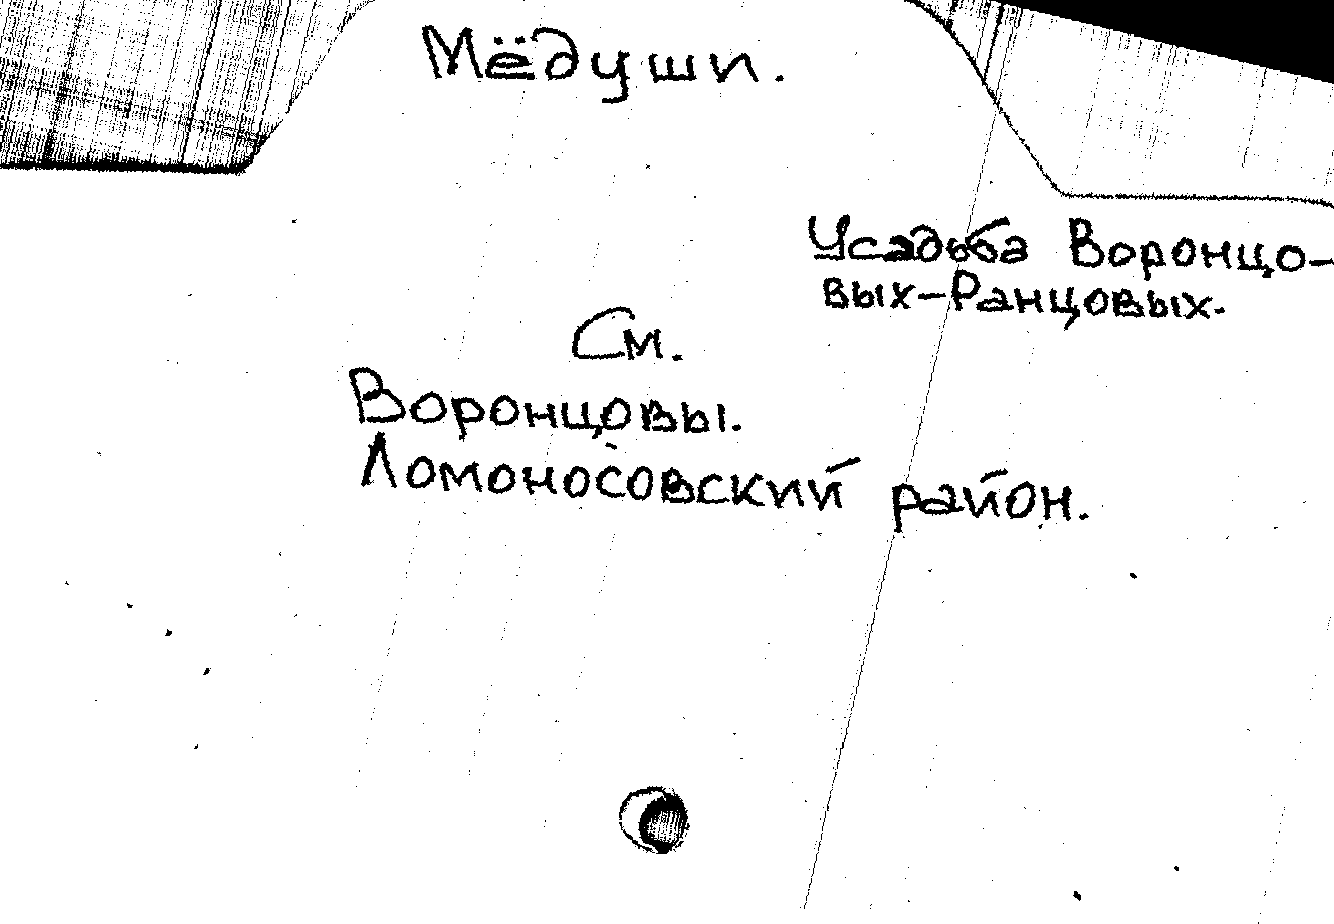 Мёдуши.
Усадьба Воронцо-
вых-Ранцовых.
См.
Воронцовы.
Ломоносовский район.